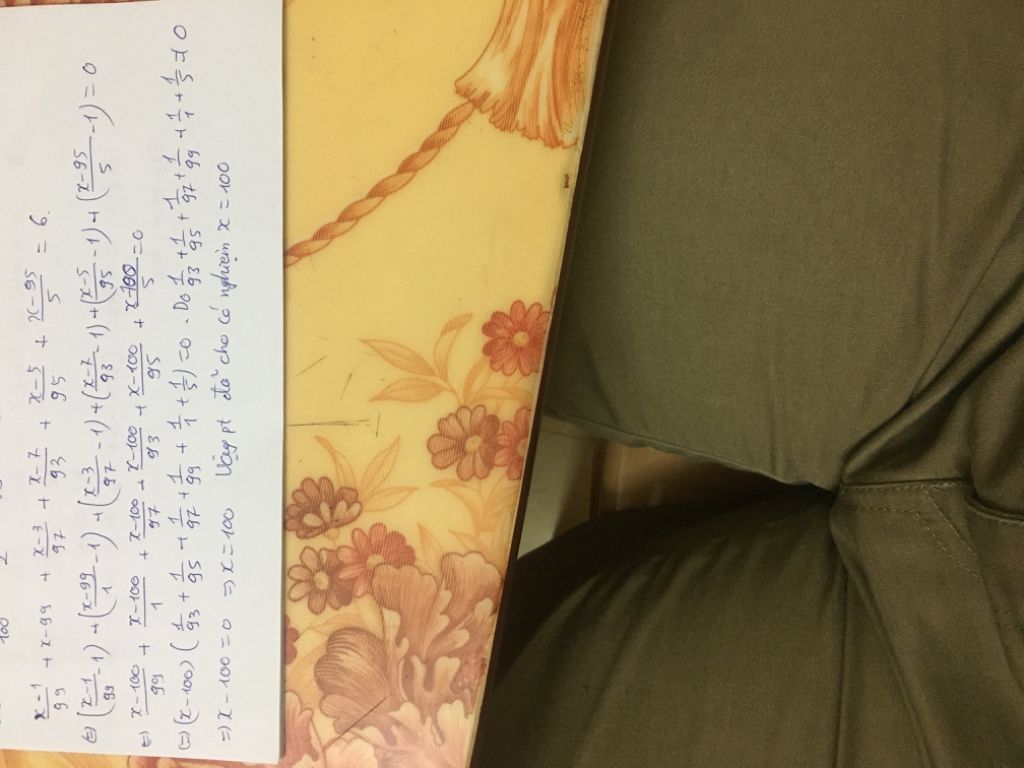 100 2
x-1/99 + x-99 + x-3/97 + x-7/93 + x-5/95 + x-95/5 = 6.
(=) (x-1/99 -1) + (x-99/1 -1) + (x-3/97 -1) + (x-7/93 -1) + (x-5/95 -1) + (x-95/5 -1) = 0
(=) x-100/99 + x-100/1 + x-100/97 + x-100/93 + x-100/95 + x-100/5 = 0
(=) (x-100) (1/93 + 1/95 + 1/97 + 1/99 + 1/1 + 1/5) = 0 . Do 1/93 + 1/95 + 1/97 + 1/99 + 1/1 + 1/5 ≠ 0
=> x-100 = 0 => x = 100 Vậy pt đã cho có nghiệm x = 100